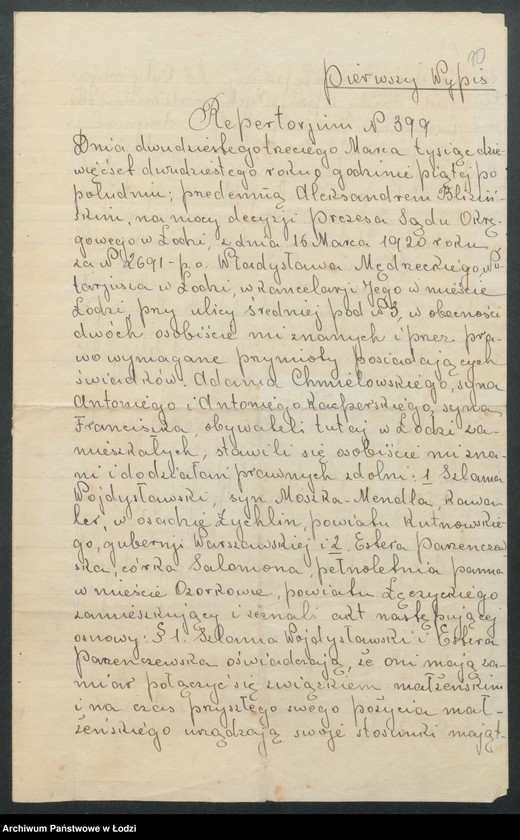 70
Pierwszy Wypis
Repertorjum N 399
Dnia dwudziestegotrzeciego Marca tysiąc dzie-
więćset dwudziestego roku, o godzinie piątej po
południu, przedemną Aleksandrem Blizin-
skim, na mocy decyzji Prezesa Sądu Okrę-
gowego w Łodzi, z dnia 16 Marca 1920 roku
za N 2691 - p.o. Władysława Mędrzeckiego, No-
tarjusza w Łodzi, w kancelarji Jego w mieście
Łodzi, przy ulicy Średniej pod N 3, w obecności
dwóch osobiście mi znanych i przez pra-
wo wymagane przymioty posiadających
świadków: Adama Chmielowskiego, syna
Antoniego i Antoniego Kacperskiego, syna
Franciszka, obywateli tutaj w Łodzi za-
mieszkałych, stawili się osobiście mi zna-
ni i do działań prawnych zdolni: 1 Szlama
Wojdysławski, syn Moszka-Mendla, kawa-
ler, w osadzie Żychlin, powiatu Kutnowskie-
go, gubernji Warszawskiej i 2. Estera Parzenczew-
ska, córka Salomona, pełnoletnia panna
w mieście Ozorkowie, powiatu Łęczyckiego
zamieszkujący i zeznali akt następującej
osnowy: § 1. Szlama Wojdysławski i Estera
Parzenczewska oświadczają, że oni mają za-
miar połączyć się związkiem małżeńskim
i na czas przyszłego swego pożycia mał-
żeńskiego urządzają swoje stosunki mająt-
Archiwum Państwowe w Łodzi